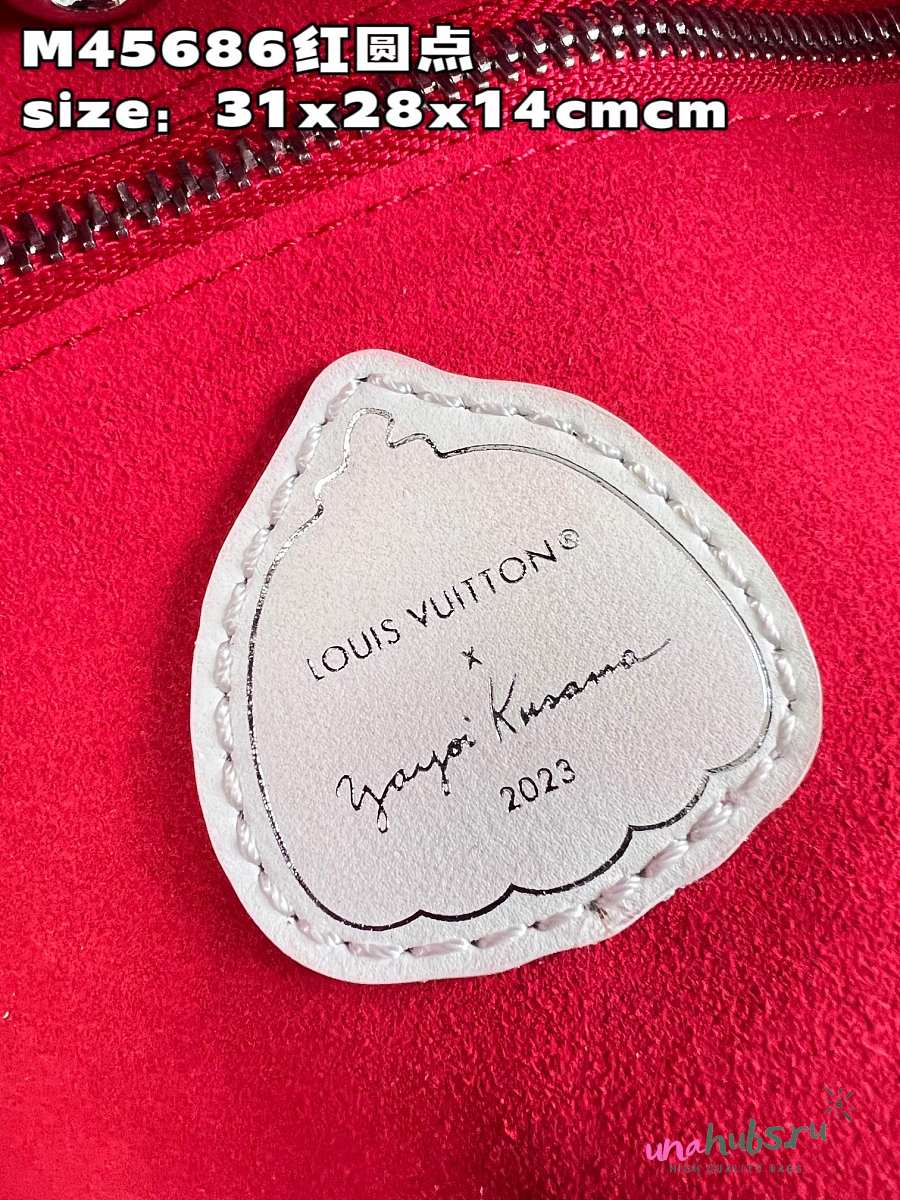 M45686红圆点
size：31x28x14cmcm
LOUIS VUITTON®
x
Yayoi Kusama
2023
unahubs.ru
HIGH QUALITY BAGS